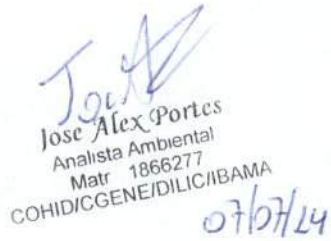 José Alex Portes
Analista Ambiental
Matr 1866277
COHID/CGENE/DILIC/IBAMA
07/07/14